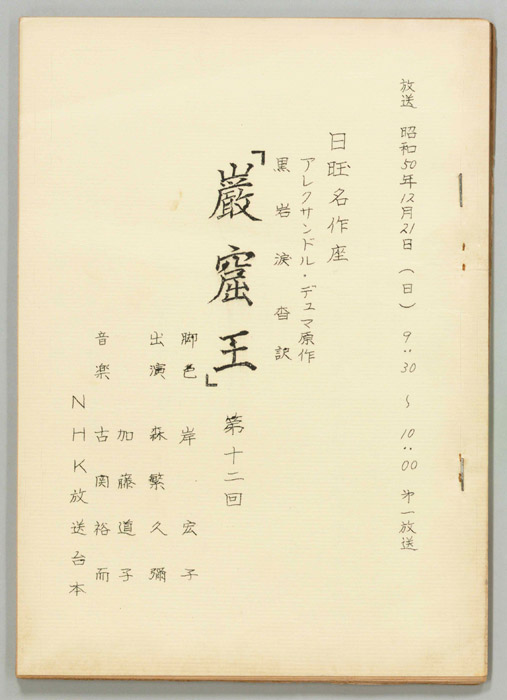 放送 昭和50年12月21日(日) 9:30～10:00 第一放送
日曜名作座
アレクサンドル・デュマ原作
黒岩涙香訳
「巌窟王」 第十二回
脚色 岸 宏子
出演 森繁久彌
加藤道子
音楽 古関裕而
NHK放送台本